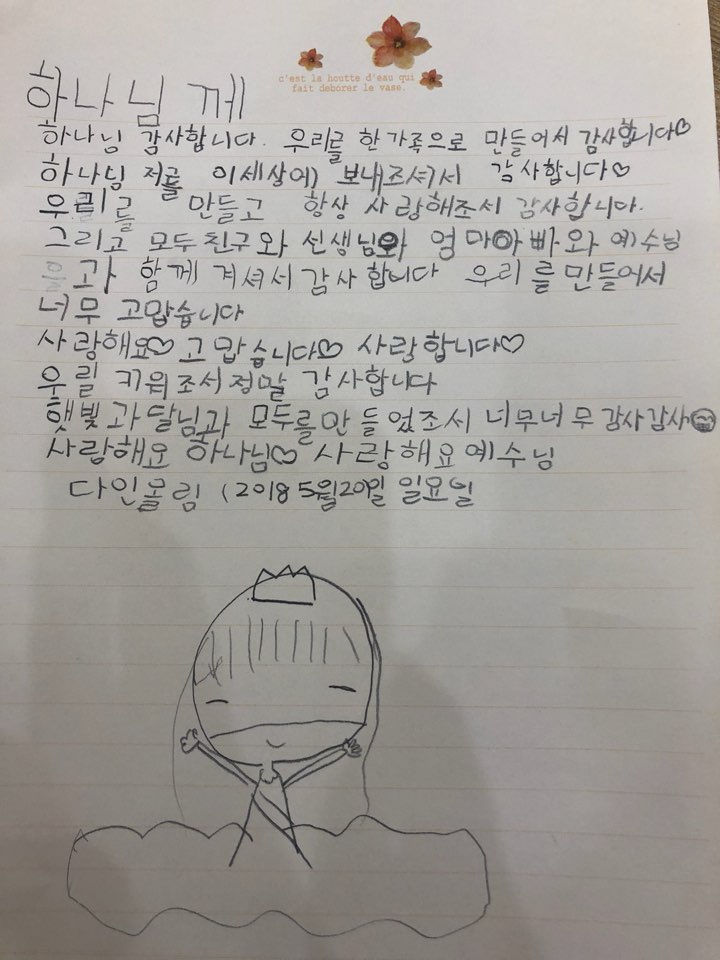 c'est la houtte d'eau qui
fait deborer le vase.
하나님 께
하나님 감사합니다. 우리를 한가족으로 만들어서 감사합니다♡
하나님 저를 이세상에 보내즈셔서 감사합니다♡
우리를 만들고 항상 사랑해조서 감사합니다.
그리고 모두친구와 선생님와 엄마아빠와 예수님
과 함께 계셔서감사합니다 우리를만들어서
너무 고맙습니다
사랑해요♡고맙습니다♡ 사랑합니다♡
우릴 키워조서정말 감사합니다
햇빛과달님과 모두를만들었조서 너무너무감사감사
사랑해요 하나님♡ 사랑해요예수님
다인올림 (2018 5월20일 일요일